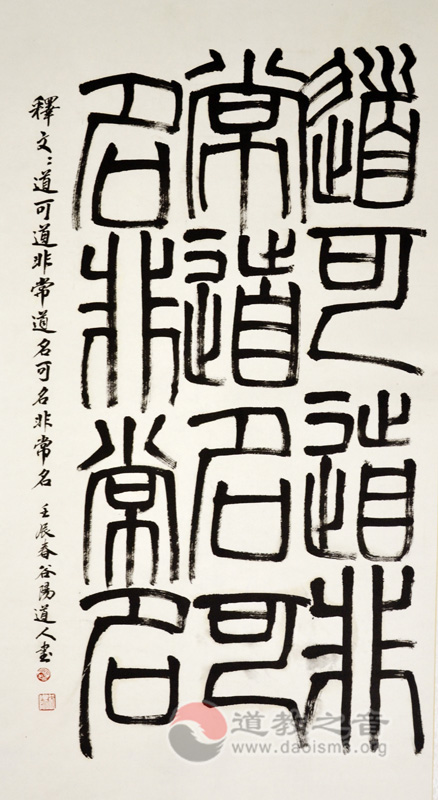 道可道非
常道名可
名非常名
釋文:道可道非常道名可名非常名 壬辰春谷陽道人書
道教之音
www.daoisms.org